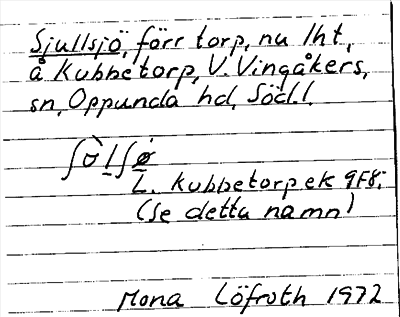 Sjullsjö, förr torp, nu lht.,
å Kubbetorp, V. Vingåkers,
sn, Oppunda hd, Södl.
L. Kubbetorp ek 9F8;
(se detta namn)
Mona Löfroth 1972